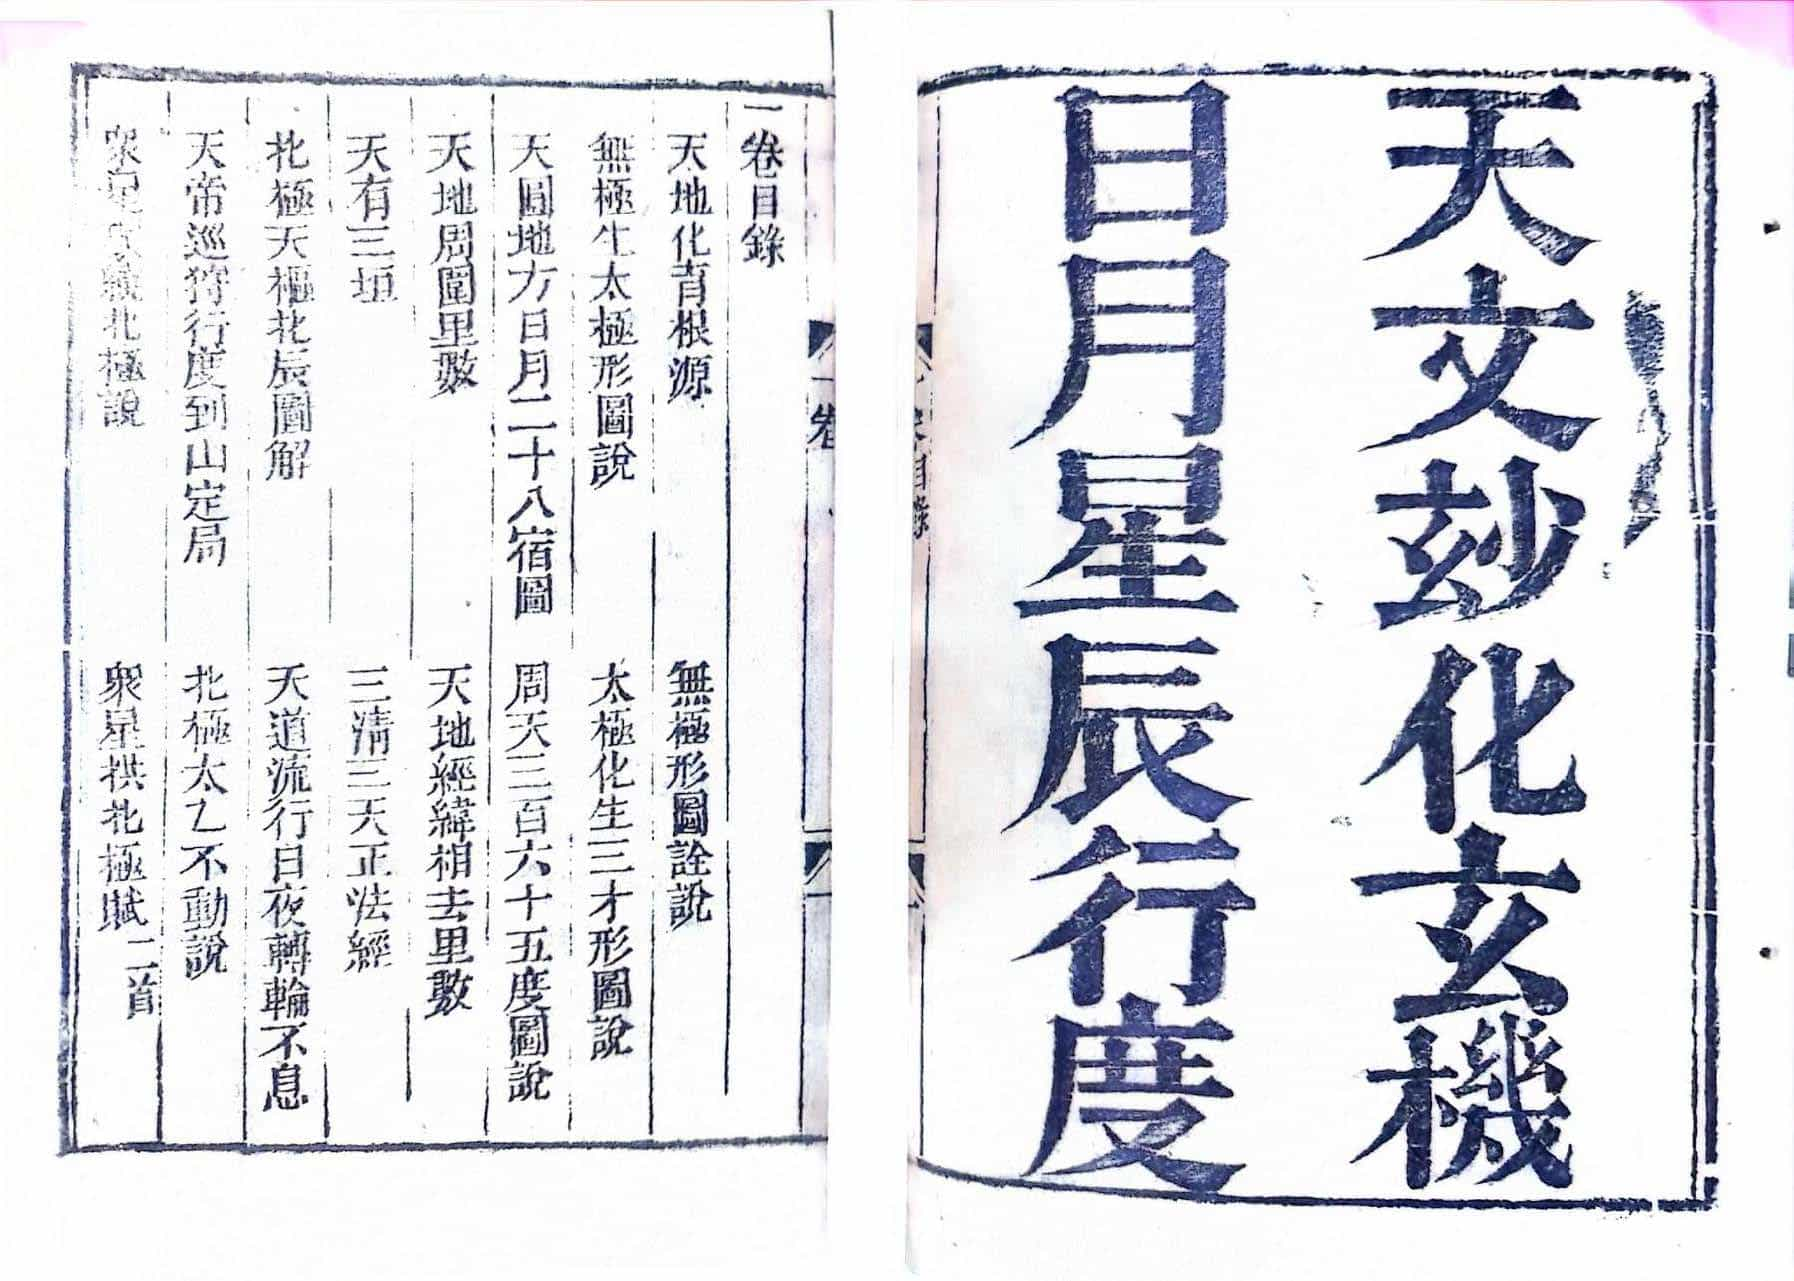 天文玅化玄機
日月星辰行度
一卷目錄
天地化育根源
無極形圖詮說
無極生太極形圖說
太極化生三才形圖說
天圓地方日月二十八宿圖
周天三百六十五度圖說
天地周圍里數
天地經緯相去里數
天有三垣
三清三天正法經
北極天樞北辰圖解
天道流行日夜轉輪不息
天帝巡狩行度到山定局
北極太乙不動說
眾星
北極說
眾星拱北極賦二首
一卷
目錄